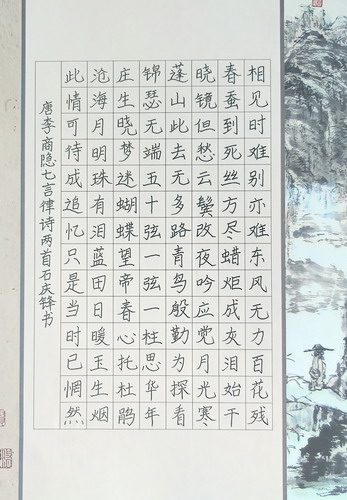 相见时难别亦难东风无力百花残
春蚕到死丝方尽蜡炬成灰泪始干
晓镜但愁云鬓改夜吟应觉月光寒
蓬山此去无多路青鸟殷勤为探看
锦瑟无端五十弦一弦一柱思华年
庄生晓梦迷蝴蝶望帝春心托杜鹃
沧海月明珠有泪蓝田日暖玉生烟
此情可待成追忆只是当时已惘然
唐李商隐七言律诗两首石庆锋书